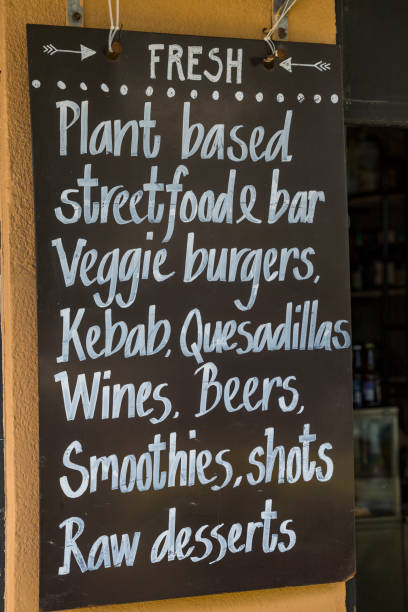 FRESH
Plant based
streetfood & bar
Veggie burgers,
Kebab, Quesadillas
Wines, Beers,
Smoothies, shots
Raw desserts